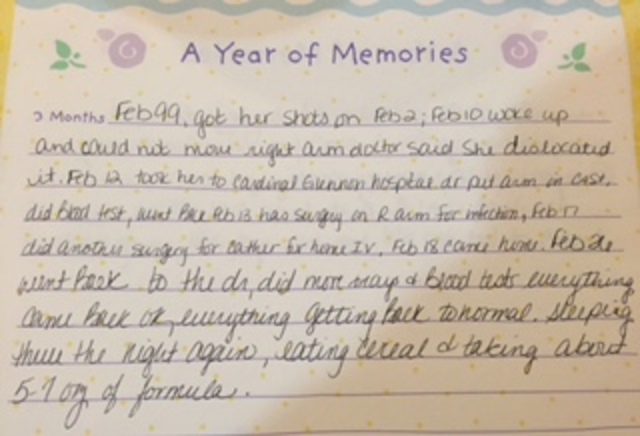 A Year of Memories
Months Feb 99, got her shots on Feb 2; Feb 10 woke up
and could not move right arm doctor said she dislocated
it. Feb 12 took her to Cardinal Glennon hospital dr put arm in cast,
did blood test, went back Feb 13 has surgery on R arm for infection, Feb 17
did another surgery for cather for home IV. Feb 18 came home. Feb
went back to the dr, did more xray & blood tests everything
came back ok, everything getting back to normal. sleeping
threw the night again, eating cereal & taking about
5-7 oz of formula.